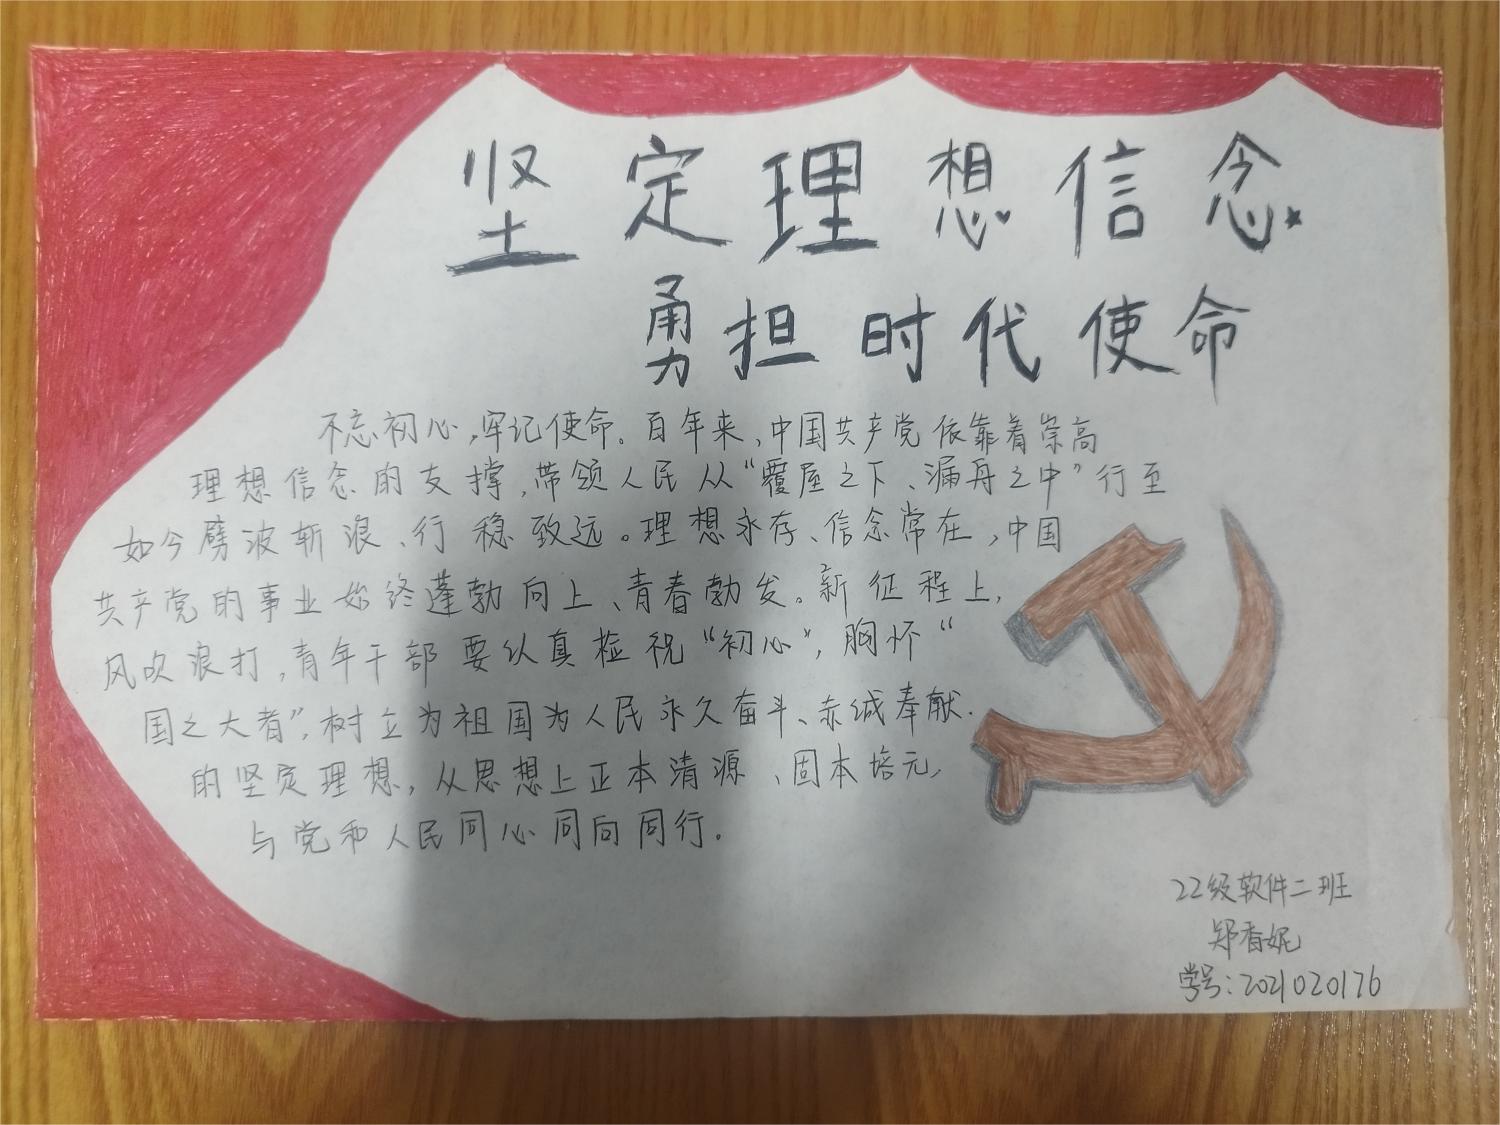 坚定理想信念
勇担时代使命
不忘初心,牢记使命。百年来,中国共产党依靠着崇高
理想信念的支撑,带领人民从“覆屋之下、漏舟之中”行至
如今劈波斩浪、行稳致远。理想永存、信念常在,中国
共产党的事业始终蓬勃向上、青春勃发。新征程上,
风吹浪打,青年干部要认真检视“初心”,胸怀“
国之大者”,树立为祖国为人民永久奋斗、赤诚奉献.
的坚定理想,从思想上正本清源、固本培元,
与党和人民同心同向同行。
22级软件二班
郑香妮
学号:2021020176